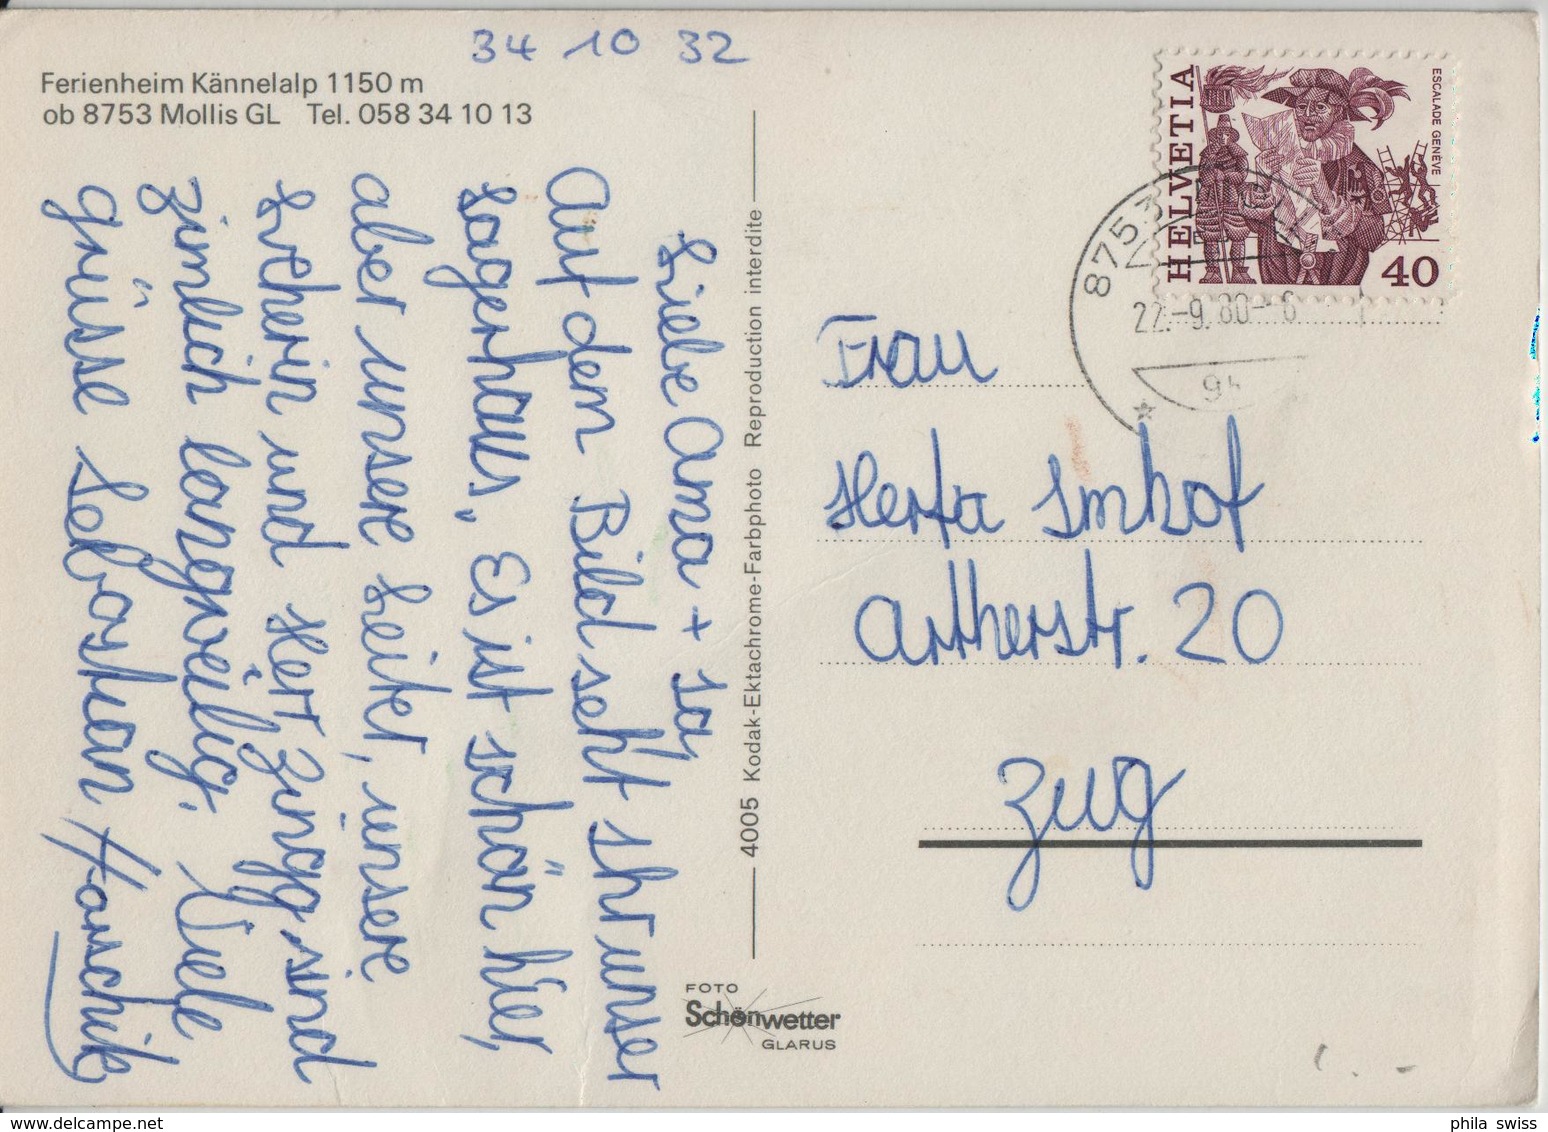 34 10 32
Ferienheim Kännelalp 1150 m
ob 8753 Mollis GL Tel. 058 34 10 13
Liebe Ama + sa
Auf dem Bild seht ihr unser
Lagerhaus. Es ist schön hier,
aber unsere Leiter, unsere
Lecherin und Herr Zingg, sind
zimlich langweilig. Viele
grüsse Sebastian
4005 Kodak-Ektachrome-Farbphoto Reproduction interdite
FOTO
Schönwetter
GLARUS
HELVETIA
ESCALADE GENÈVE
40
8753
22.-9.80-6
Frau
Herta Imhof
Artherstr. 20
Zug
phila swiss